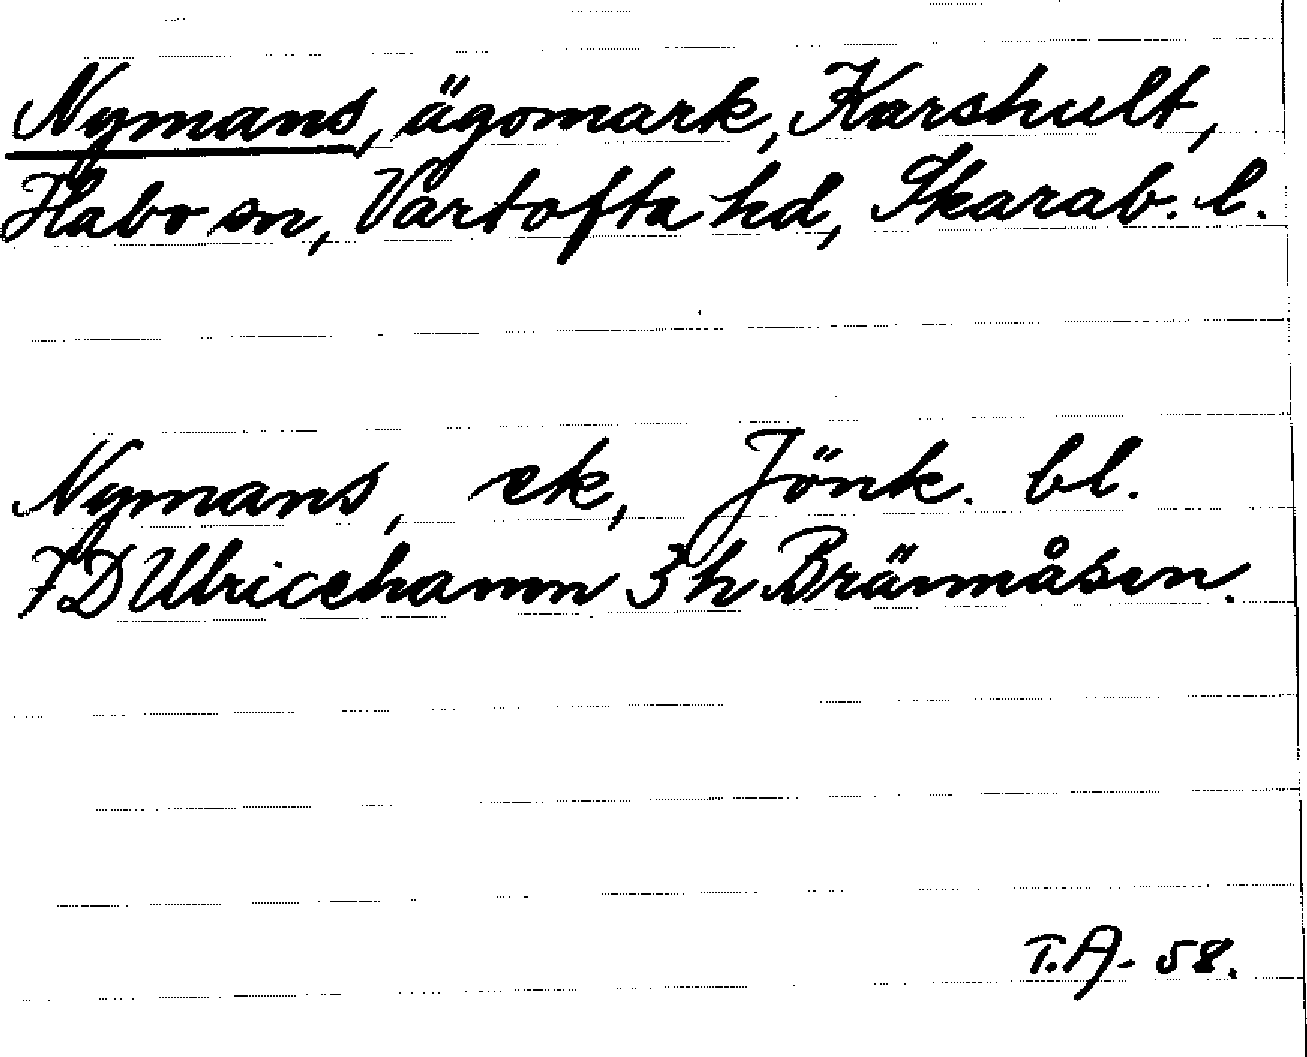 Nymans, ägomark, Karshult,
Habo sn, Vartofta hd, Skarab. l.
Nymans, ek, Jönk. bl.
7D Ulricehamn 3 h Brännåsen.
T.A- 58.